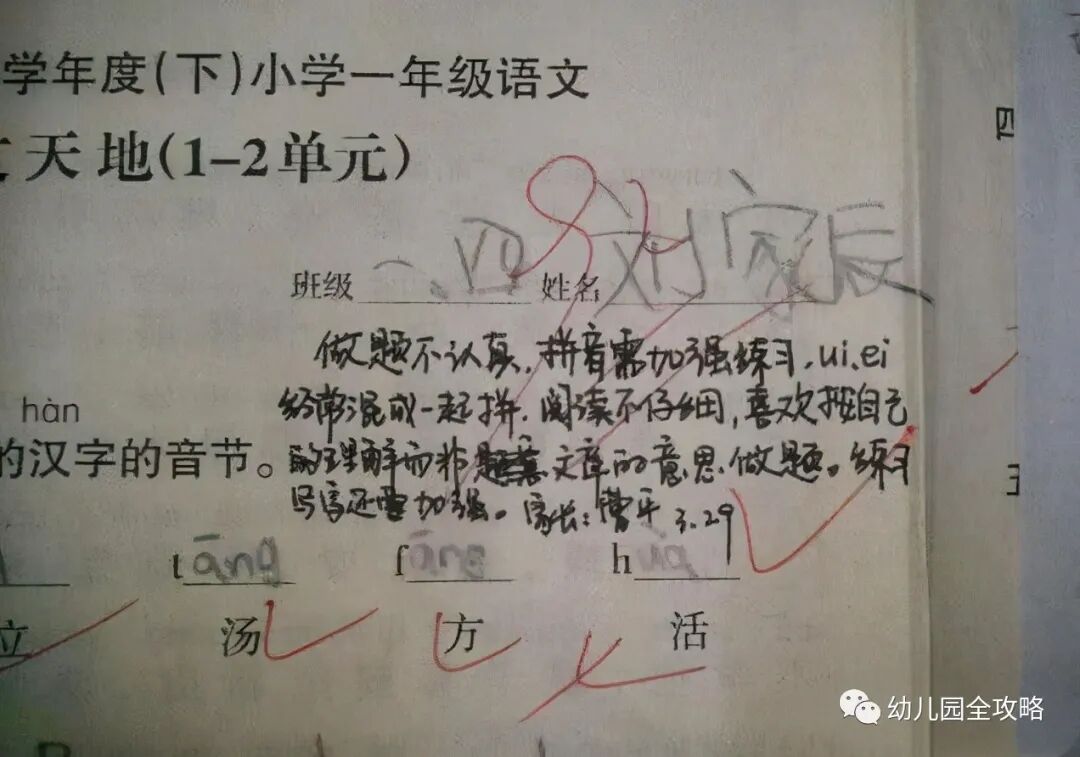 学年度(下)小学一年级语文
天地(1-2单元)
四
班级 一.四 姓名 刘家辰
82
做题不认真,拼音需加强练习,ui、ei
经常混成一起拼.阅读不仔细,喜欢按自己
的理解而非文章的意思做题。练习
书写还需加强。家长:曹平 3.29
hàn
的汉字的音节。
tāng fāng h
立 汤 方 活
幼儿园全攻略